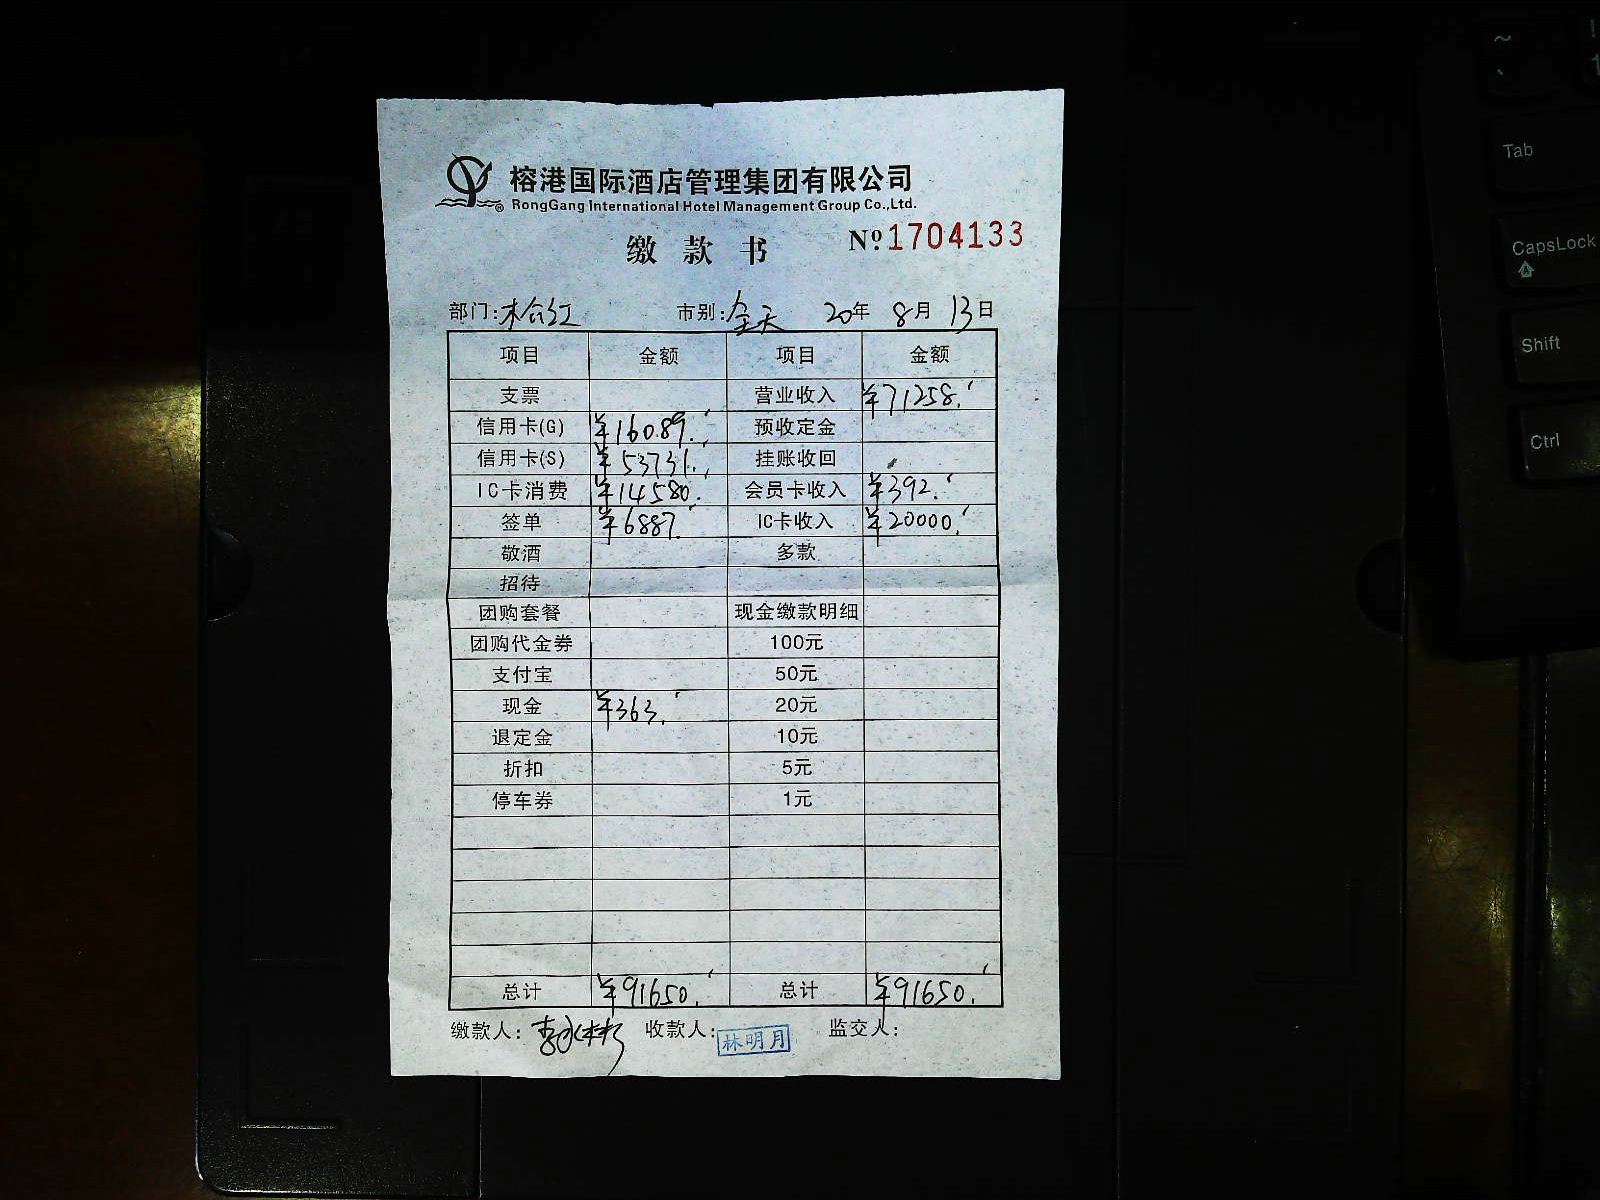 榕港国际酒店管理集团有限公司
RongGang International Hotel Management Group Co.,Ltd.
缴款书 Nº1704133
部门: 市别:全天 20年 8月 13日
项目 金额 项目 金额
支票 营业收入 ¥71258.
信用卡(G) ¥16089. 预收定金
信用卡(S) ¥53731. 挂账收回
IC卡消费 ¥14580. 会员卡收入 ¥392.
签单 ¥6887. IC卡收入 ¥20000.
敬酒 多款
招待
团购套餐 现金缴款明细
团购代金券 100元
支付宝 50元
现金 ¥363. 20元
退定金 10元
折扣 5元
停车券 1元
总计 ¥91650. 总计 ¥91650.
缴款人: 收款人:林明月 监交人:
~
`
Tab
CapsLock
Shift
Ctrl